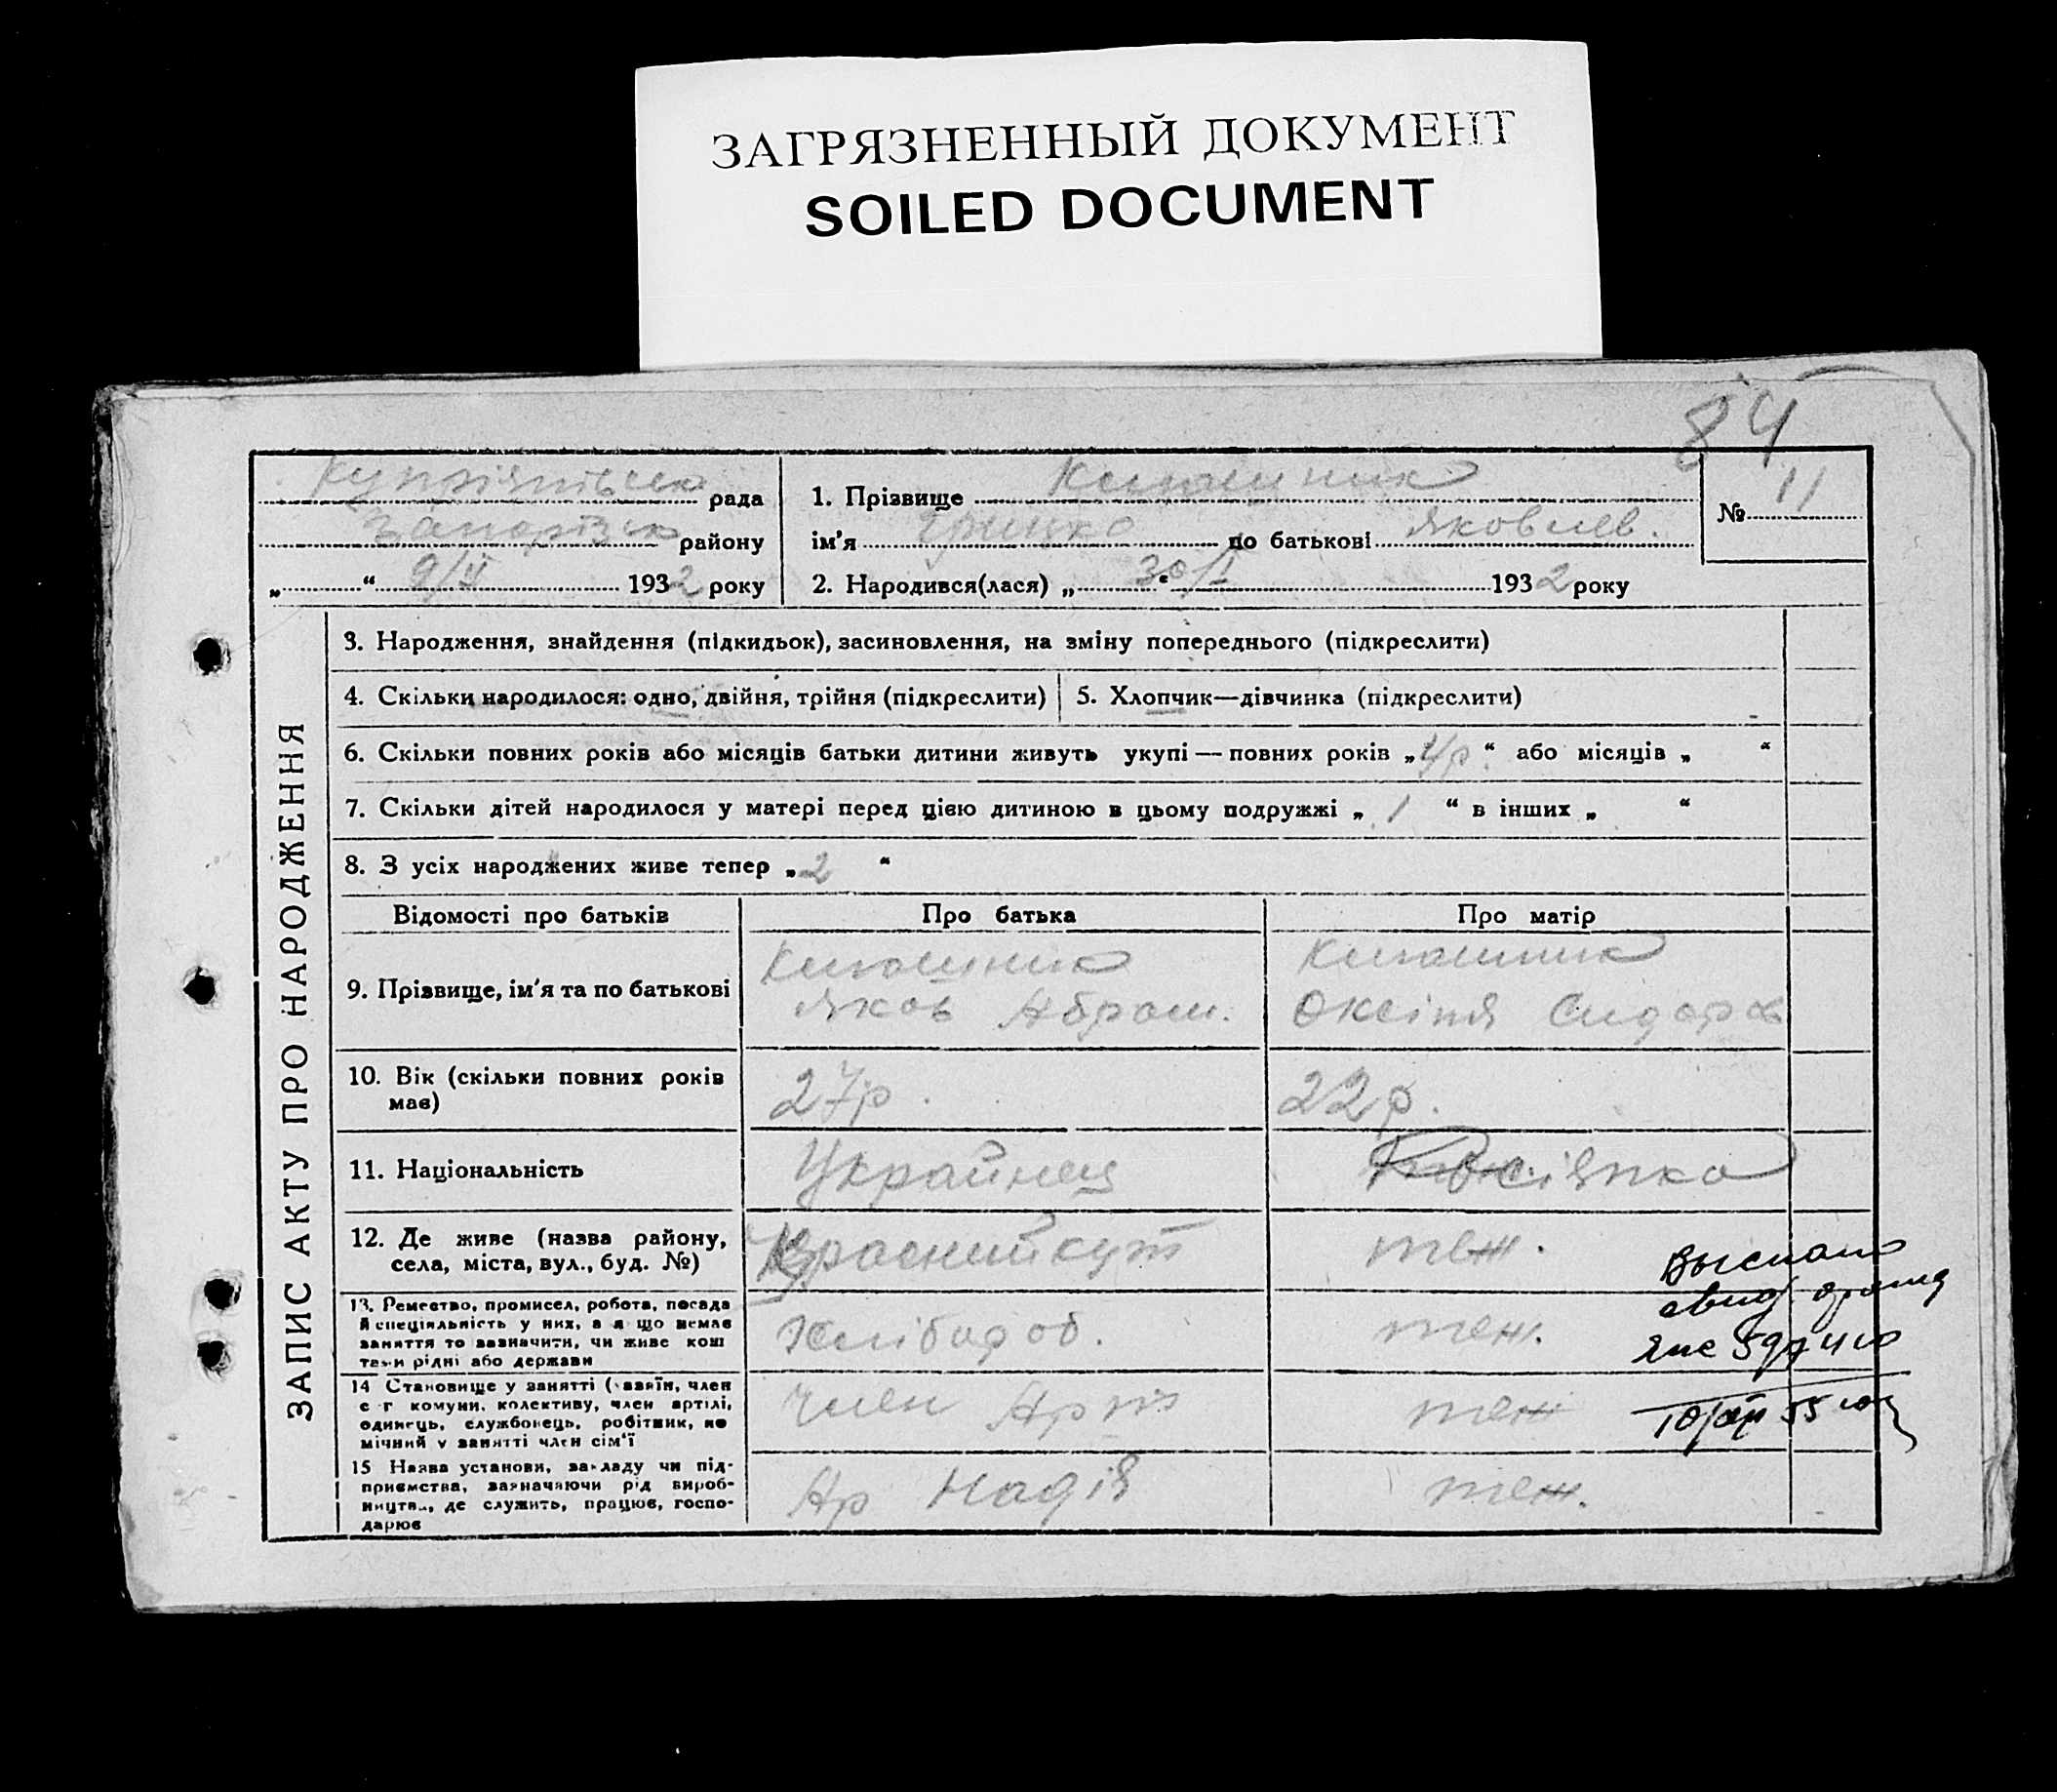 ЗАГРЯЗНЕННЫЙ ДОКУМЕНТ
SOILED DOCUMENT
84
рада
району
„ “ 9/V 1932 року
1. Прізвище
ім'я Грицко по батькові Яковлев.
2. Народився(лася) „ “ 30/I 1932 року
№ 11
ЗАПИС АКТУ ПРО НАРОДЖЕННЯ
3. Народження, знайдення (підкидьок), засиновлення, на зміну попереднього (підкреслити)
4. Скільки народилося: одно, двійня, трійня (підкреслити)
5. Хлопчик—дівчинка (підкреслити)
6. Скільки повних років або місяців батьки дитини живуть укупі — повних років „4р.“ або місяців „ “
7. Скільки дітей народилося у матері перед цією дитиною в цьому подружжі „ 1 “ в інших „ “
8. З усіх народжених живе тепер „2 “
Відомості про батьків
Про батька
Про матір
9. Прізвище, ім'я та по батькові
Яков Абрам.
Оксіня Сидоров
10. Вік (скільки повних років має)
27р.
22р.
11. Національність
Украйнец
Росіянка
12. Де живе (назва району,
села, міста, вул., буд. №)
Краснийкут
теж.
13. Ремество, промисел, робота, посада
й спеціяльність у них, а я що немає
заняття то зазначити, чи живе кош
тами рідні або держави
Хлібороб.
теж.
14 Становище у занятті (хазяїн, член
с-г комуни, колективу, член артілі,
одинець, службовець, робітник, по
мічний у занятті член сім'ї
член Арт
теж
15 Назва установи, закладу чи під-
приємства, зазначаючи рід вироб-
ництва, де служить, працює, госпо-
дарює
Ар Надія
теж.